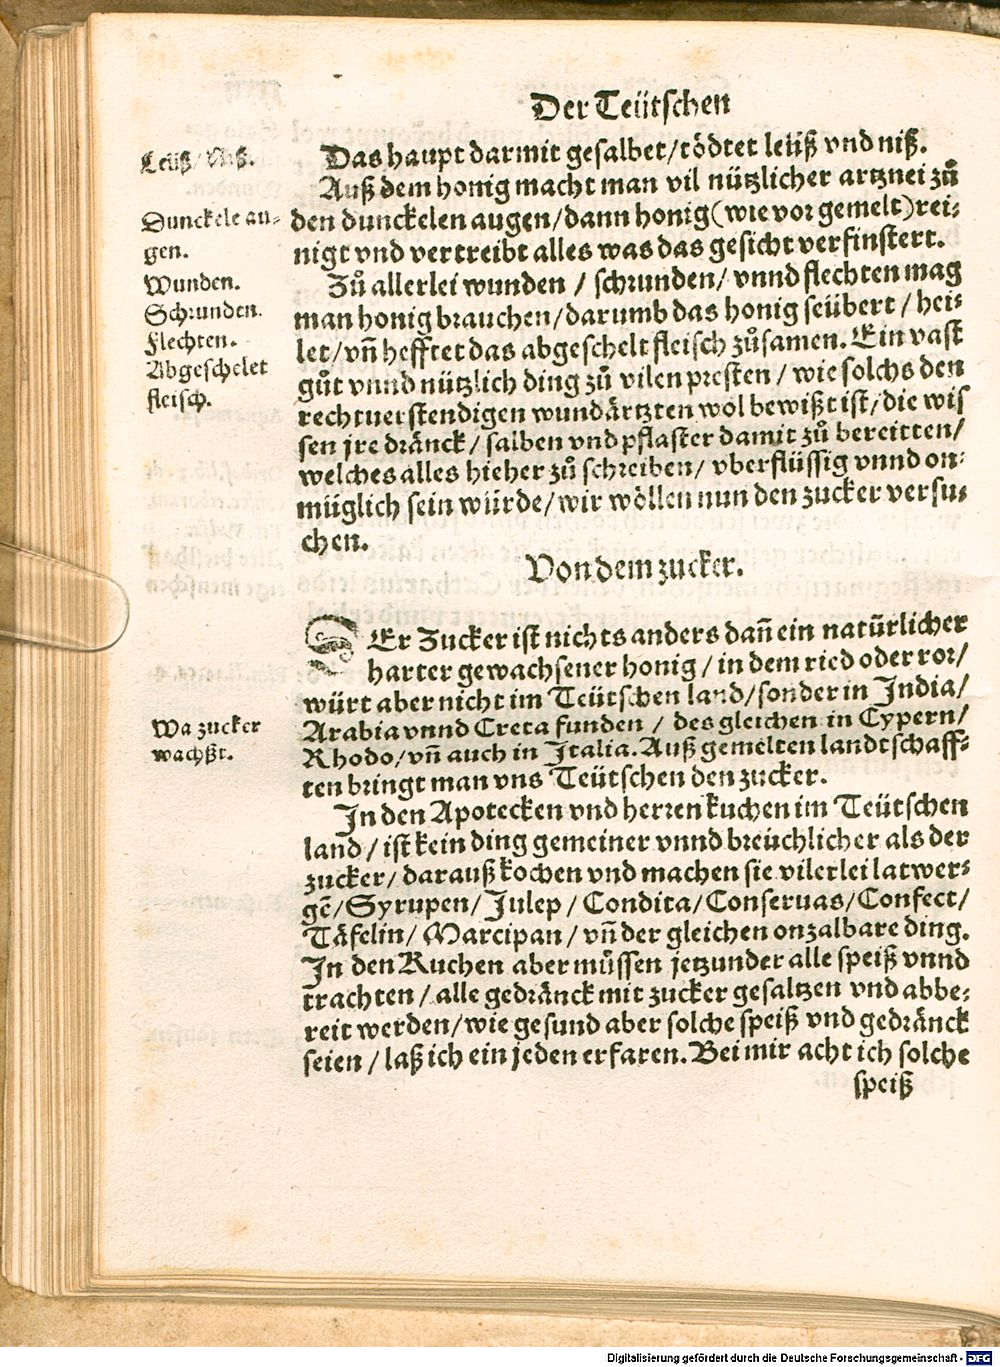 Der Teütschen
Leüß/ Niß.
Das haupt darmit gesalbet/tödtet leüß vnd niß.
Auß dem honig macht man vil nützlicher artznei zuͦ
Dunckele au-
gen.
den dunckelen augen/dann honig(wie vor gemelt)rei-
nigt vnd vertreibt alles was das gesicht verfinstert.
Wunden.
Schrunden.
Flechten.
Abgeschelet
fleisch.
Zuͦ allerlei wunden / schrunden/ vnnd flechten mag
man honig brauchen/darumb das honig seübert / hei-
let/vn̄ hefftet das abgeschelt fleisch zuͦsamen. Ein vast
guͦt vnnd nützlich ding zuͦ vilen presten / wie solchs den
rechtuerstendigen wundärtzten wol bewißt ist/die wis
sen jre dränck/ salben vnd pflaster damit zuͦ bereitten/
welches alles hieher zuͦ schreiben/ vberflüssig vnnd on-
müglich sein würde/wir wöllen nun den zucker versu-
chen.
Von dem zucker.
DEr Zucker ist nichts anders dan̄ ein natürlicher
harter gewachsener honig / in dem ried oder ror/
würt aber nicht im Teütschen land/sonder in India/
Wa zucker
wachßt.
Arabia vnnd Creta funden / des gleichen in Cypern/
Rhodo/vn̄ auch in Italia. Auß gemelten landtschaff-
ten bringt man vns Teütschen den zucker.
In den Apotecken vnd herren kuchen im Teütschen
land / ist kein ding gemeiner vnnd breüchlicher als der
zucker/ darauß kochen vnd machen sie vilerlei latwer-
gē/Syrupen/ Julep / Condita/Conseruas/Confect/
Täfelin/ Marcipan/ vn̄ der gleichen onzalbare ding.
In den Kuchen aber müssen jetzunder alle speiß vnnd
trachten / alle gedränck mit zucker gesaltzen vnd abbe-
reit werden/wie gesund aber solche speiß vnd gedränck
seien / laß ich ein jeden erfaren. Bei mir acht ich solche
speiß
Digitalisierung gefördert durch die Deutsche Forschungsgemeinschaft - DFG